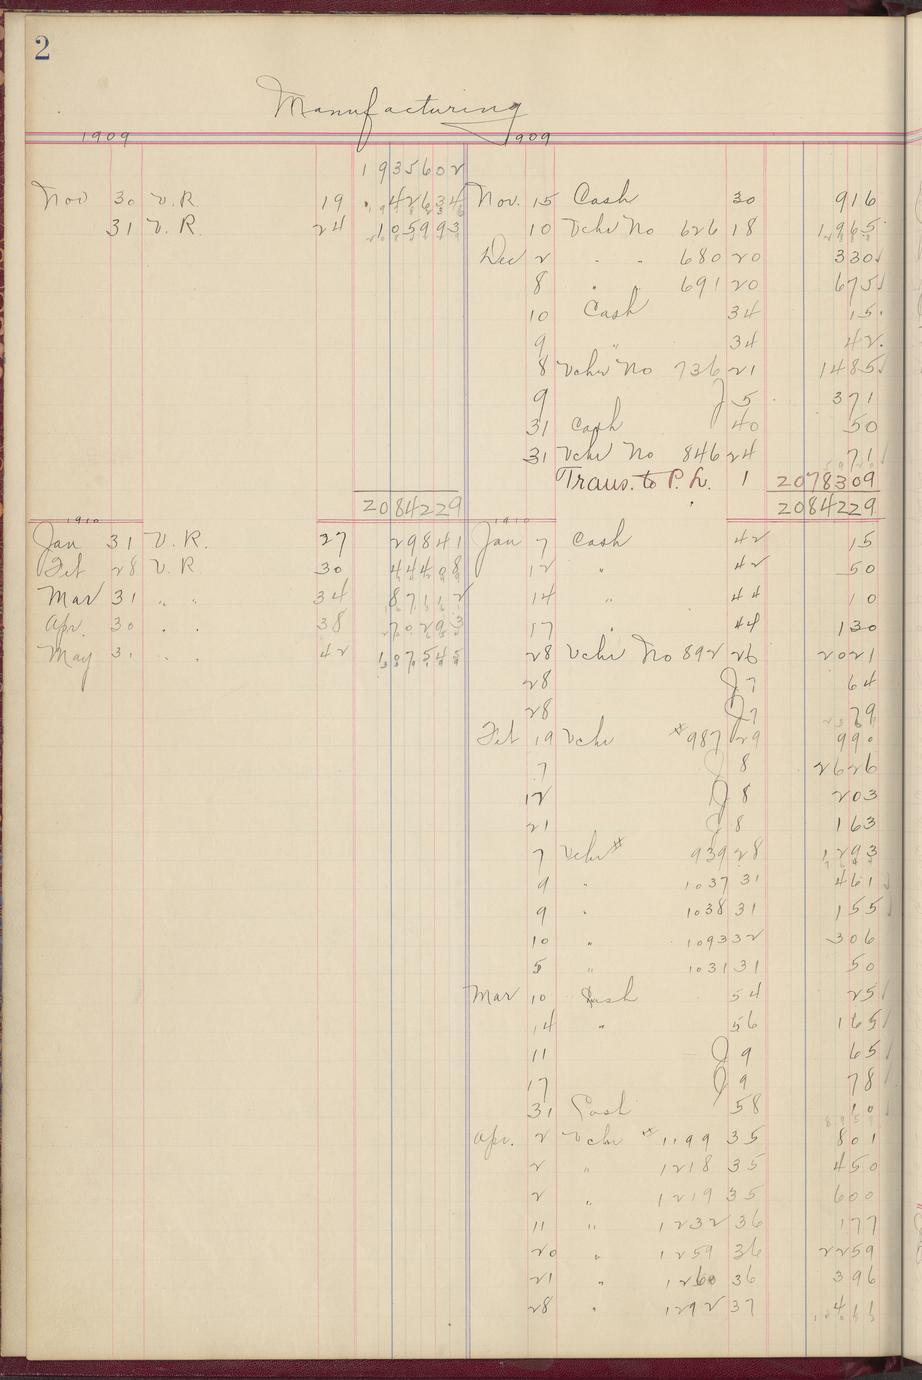 2
Manufacturing
1909
1935602
Nov 30 V.R. 19 42634
31 V.R. 24 105993
2084229
1910
Jan 31 V.R. 27 29841
Feb 28 V.R. 30 44408
Mar 31 " " 34 87112
Apr. 30 " " 38 70293
May 31 " " 42 107545
1909
Nov. 15 Cash 30 916
10 Vchr No 626 18 1965
Dec 2 " " 680 20 330
8 " " 691 20 675
10 Cash 34 15
9 " 34 42
8 Vchr No 736 21 1485
9 J 5 371
31 Cash 40 50
31 Vchr No 846 24 71
Trans. to P. L. 1 2078309
2084229
1910
Jan 7 Cash 42 15
12 " 42 50
14 " 44 10
17 " 44 130
28 Vchr No 892 26 2021
28 J 7 64
28 J 7 79
Feb 19 Vchr #987 29 990
7 J 8 2626
12 J 8 203
21 J 8 163
7 Vchr # 939 28 1293
9 " 1037 31 461
9 " 1038 31 155
10 " 1093 32 306
5 " 1031 31 50
Mar 10 Cash 54 25
14 " 56 165
11 J 9 65
17 J 9 78
31 Cash 58 10
Apr. 2 Vchr # 1199 35 801
2 " 1218 35 450
2 " 1219 35 600
11 " 1232 36 177
20 " 1259 36 2259
21 " 1260 36 396
28 " 1292 37 411